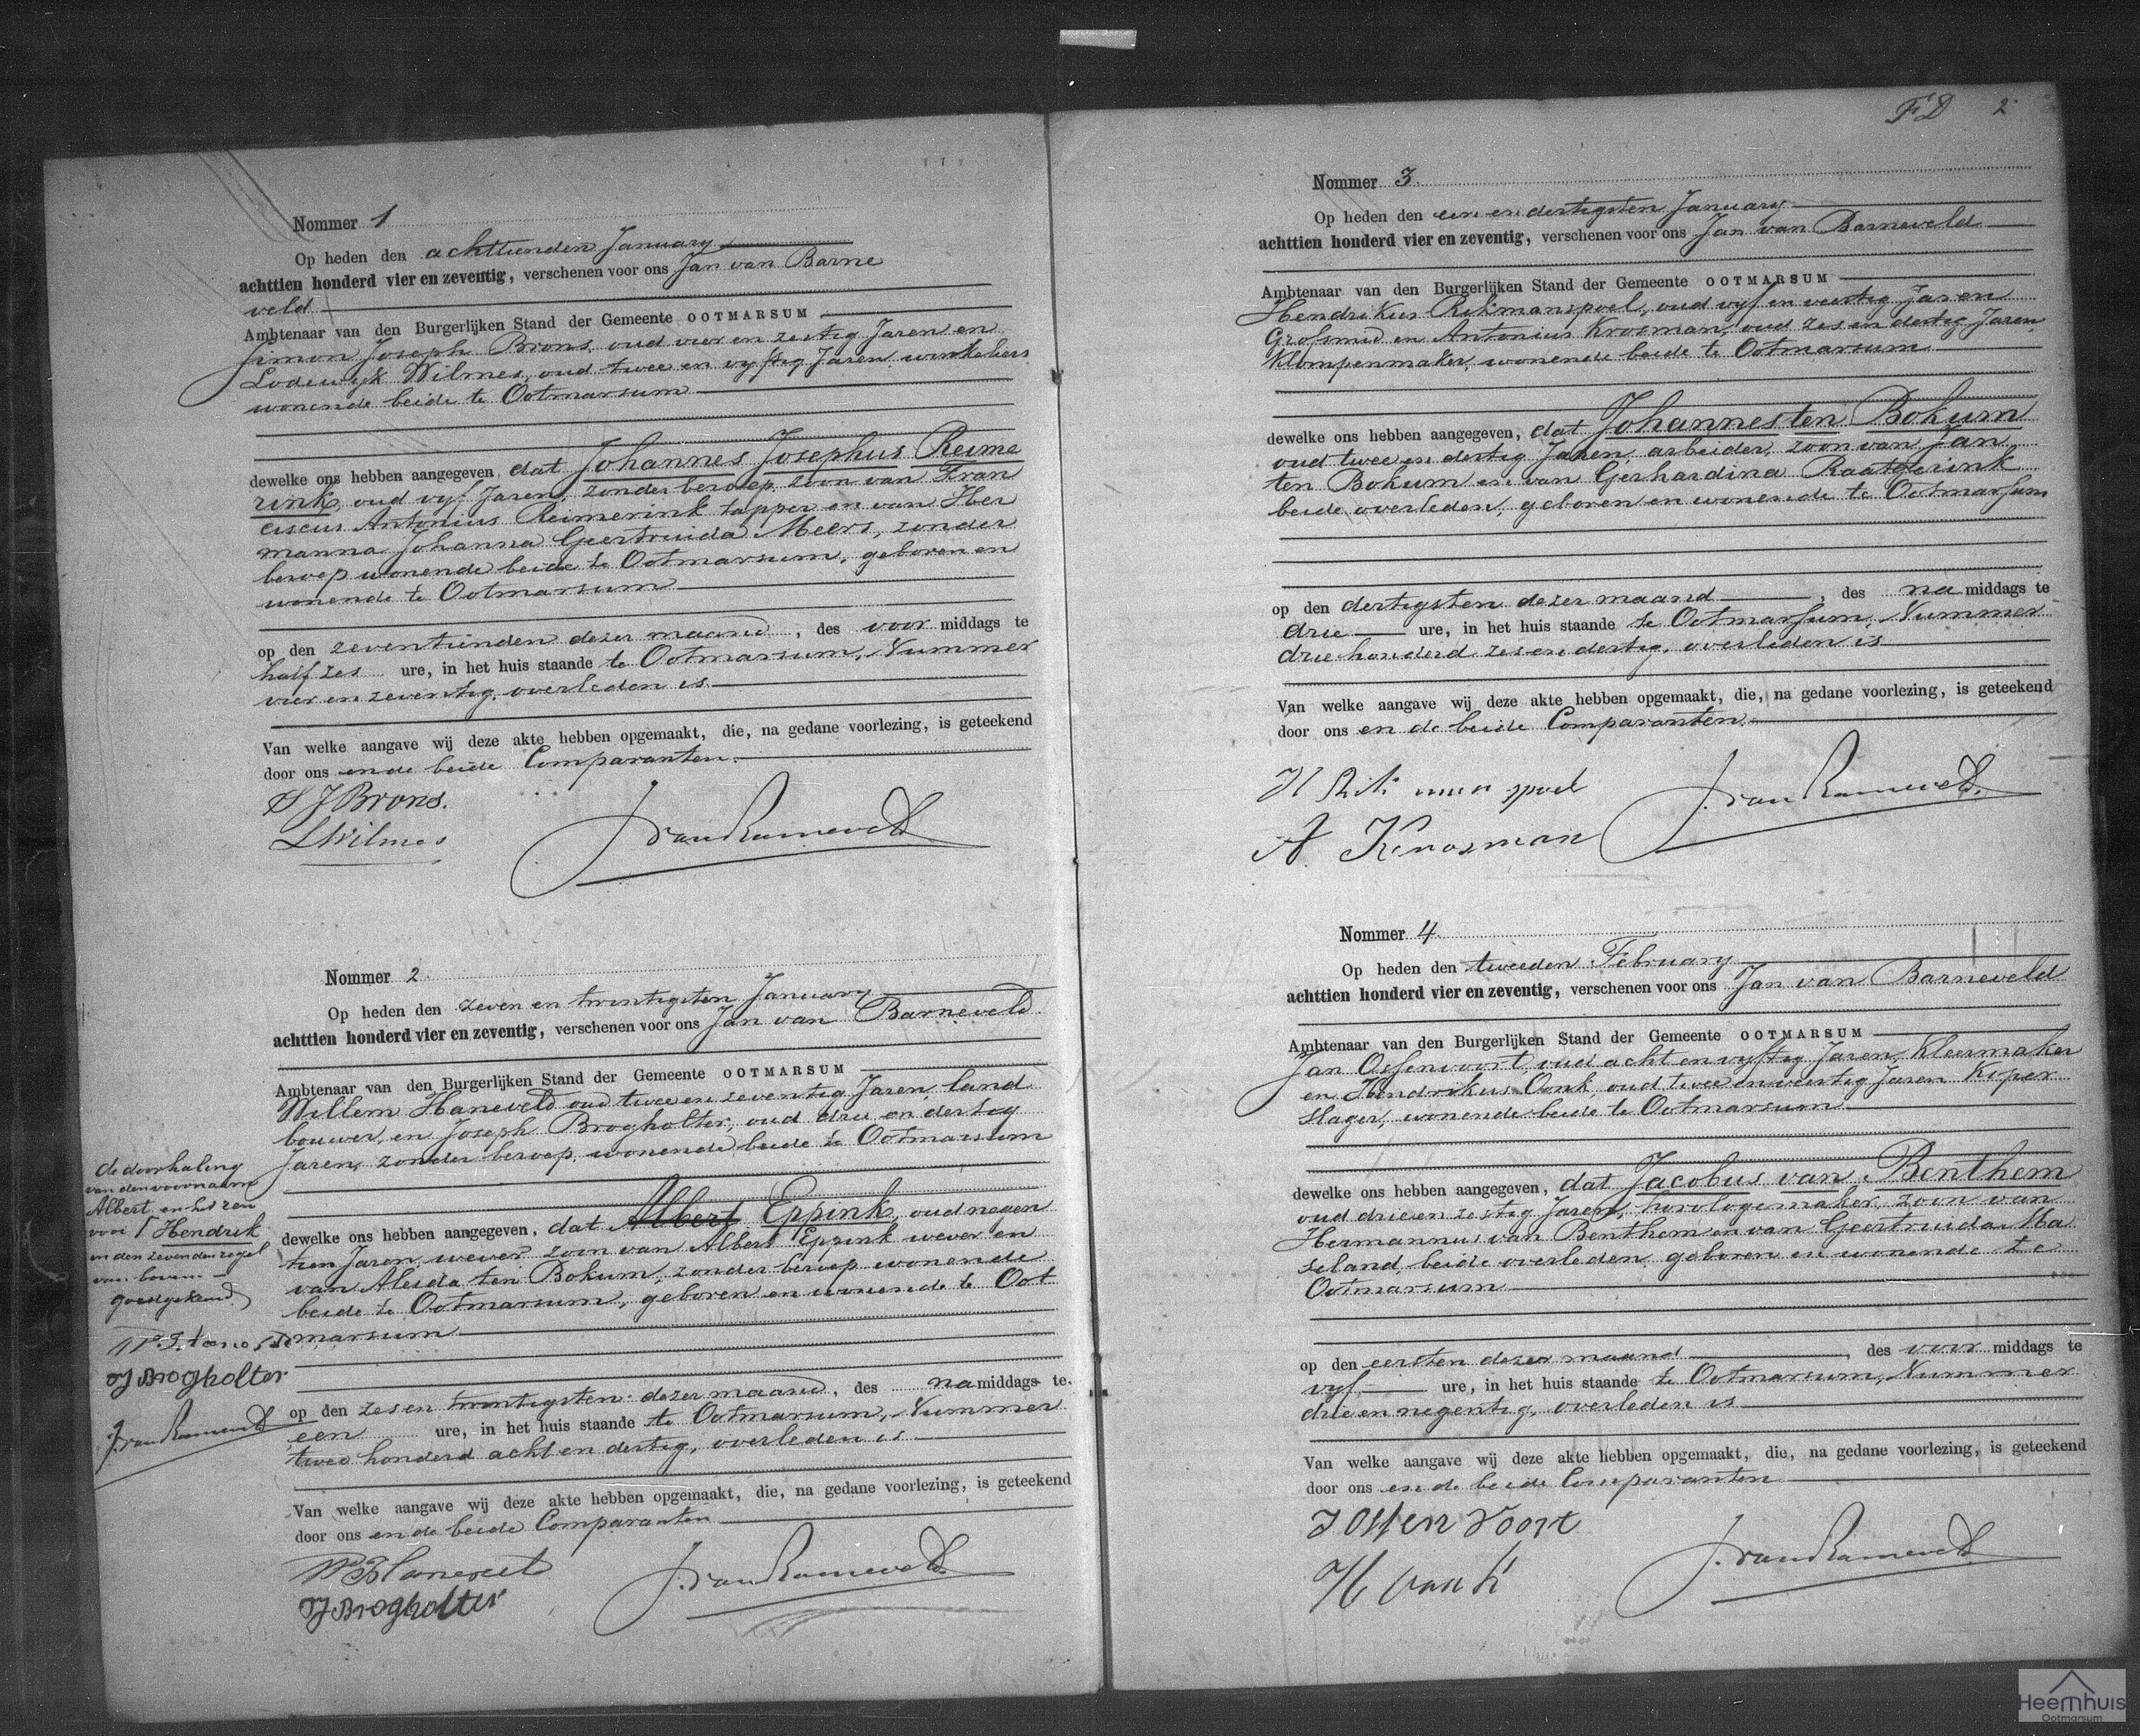 Nommer 1
Op heden den achttienden January
achttien honderd vier en zeventig, verschenen voor ons Jan van Barne
veld
Ambtenaar van den Burgerlijken Stand der Gemeente OOTMARSUM
Simon Joseph Brons, oud vier en zestig Jaren en
Lodewyk Wilmes, oud twee en vyftig Jaren, winkeliers
wonende beide te Ootmarsum
dewelke ons hebben aangegeven, dat Johannes Josephus Reime
rink, oud vyf Jaren, zonder beroep, zoon van Fran
ciscus Antonius Reimerink tapper en van Her
manna Johanna Geertruida Meers, zonder
beroep wonende beide te Ootmarsum, geboren en
wonende te Ootmarsum
op den zeventienden dezer maand, des voor middags te
half zes ure, in het huis staande te Ootmarsum, Nummer
vier en zeventig, overleden is.
Van welke aangave wij deze akte hebben opgemaakt, die, na gedane voorlezing, is geteekend
door ons en de beide Comparanten.
S J Brons.
L Wilmes
J. van Barneveld
Nommer 2
Op heden den zeven en twintigsten January
achttien honderd vier en zeventig, verschenen voor ons Jan van Barneveld
Ambtenaar van den Burgerlijken Stand der Gemeente OOTMARSUM
Willem Haneveld oud twee en zeventig Jaren, land
bouwer, en Joseph Brogholter, oud drie en dertig
Jaren, zonder beroep, wonende beide te Ootmarsum
dewelke ons hebben aangegeven, dat Albert Eppink, oud negen
tien Jaren, wever zoon van Albert Eppink wever en
van Aleida ten Bokum, zonder beroep wonende
beide te Ootmarsum, geboren en wonende te Oot
marsum
de doorhaling
van den voornaam
Albert, en het ren
vooi Hendrik
in den zevenden regel
van boven
goedgekeurd.
J Brogholter
J. van Barneveld
op den zes en twintigsten dezer maand, des na middags te
een ure, in het huis staande te Ootmarsum, Nummer
twee honderd acht en dertig, overleden is
Van welke aangave wij deze akte hebben opgemaakt, die, na gedane voorlezing, is geteekend
door ons en de beide Comparanten
W Hanevelt
J Brogholter
J. van Barneveld
F D 2
Nommer 3.
Op heden den een en dertigsten January
achttien honderd vier en zeventig, verschenen voor ons Jan van Barneveld
Ambtenaar van den Burgerlijken Stand der Gemeente OOTMARSUM
Hendrikus Rikmanspoel, oud vyf en veertig Jaren
Grofsmid en Antonius Kroosman, oud zes en dertig Jaren
Klompenmaker, wonende beide te Ootmarsum
dewelke ons hebben aangegeven, dat Johannes ten Bokum
oud twee en dertig Jaren, arbeider, zoon van Jan
ten Bokum en van Gerhardina Raatgerink
beide overleden, geboren en wonende te Ootmarsum
op den dertigsten dezer maand, des na middags te
drie ure, in het huis staande te Ootmarsum, Nummer
drie honderd zes en dertig, overleden is
Van welke aangave wij deze akte hebben opgemaakt, die, na gedane voorlezing, is geteekend
door ons en de beide Comparanten
H Rikmanspoel
A Kroosman
J. van Barneveld.
Nommer 4
Op heden den tweeden February
achttien honderd vier en zeventig, verschenen voor ons Jan van Barneveld
Ambtenaar van den Burgerlijken Stand der Gemeente OOTMARSUM
Jan Ossenvoort, oud acht en vyftig Jaren, Kleermaker
en Hendrikus Oonk, oud twee en veertig Jaren Koper
slager, wonende beide te Ootmarsum
dewelke ons hebben aangegeven, dat Jacobus van Benthem
oud drie en zestig Jaren, horologemaker, zoon van
Hermannus van Benthem en van Geertruida Ma
seland, beide overleden, geboren en wonende te
Ootmarsum
op den eersten dezer maand, des voor middags te
vyf ure, in het huis staande te Ootmarsum, Nummer
drie en negentig, overleden is
Van welke aangave wij deze akte hebben opgemaakt, die, na gedane voorlezing, is geteekend
door ons en de beide Comparanten
J Ossenvoort
H oonk
J. van Barneveld
Heemhuis
Ootmarsum